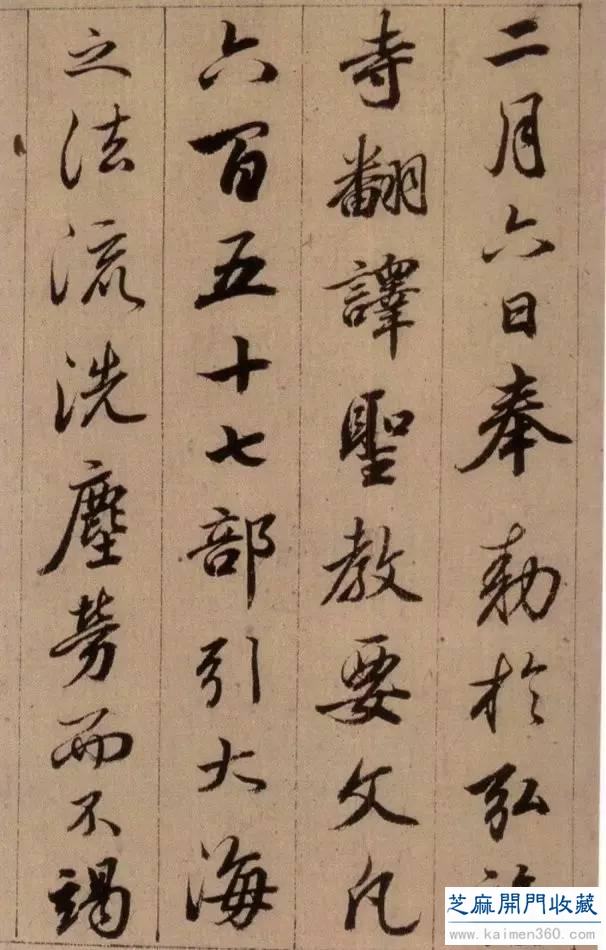 二月六日奉勅於弘
寺翻譯聖教要文凡
六百五十七部引大海
之法流洗塵勞而不竭
芝麻開門收藏
www.kaimen360.com